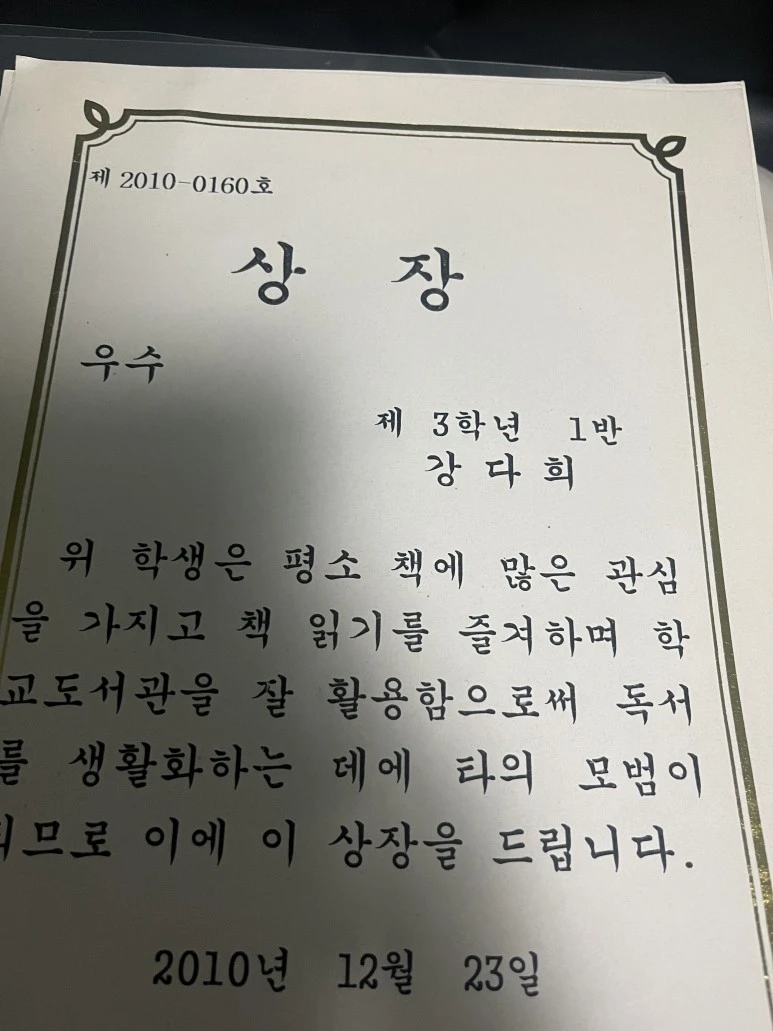 제 2010-0160호
상 장
우수
제 3학년 1반
강 다 희
위 학생은 평소 책에 많은 관심
을 가지고 책 읽기를 즐겨하며 학
교도서관을 잘 활용함으로써 독서
를 생활화하는 데에 타의 모범이
되므로 이에 이 상장을 드립니다.
2010년 12월 23일